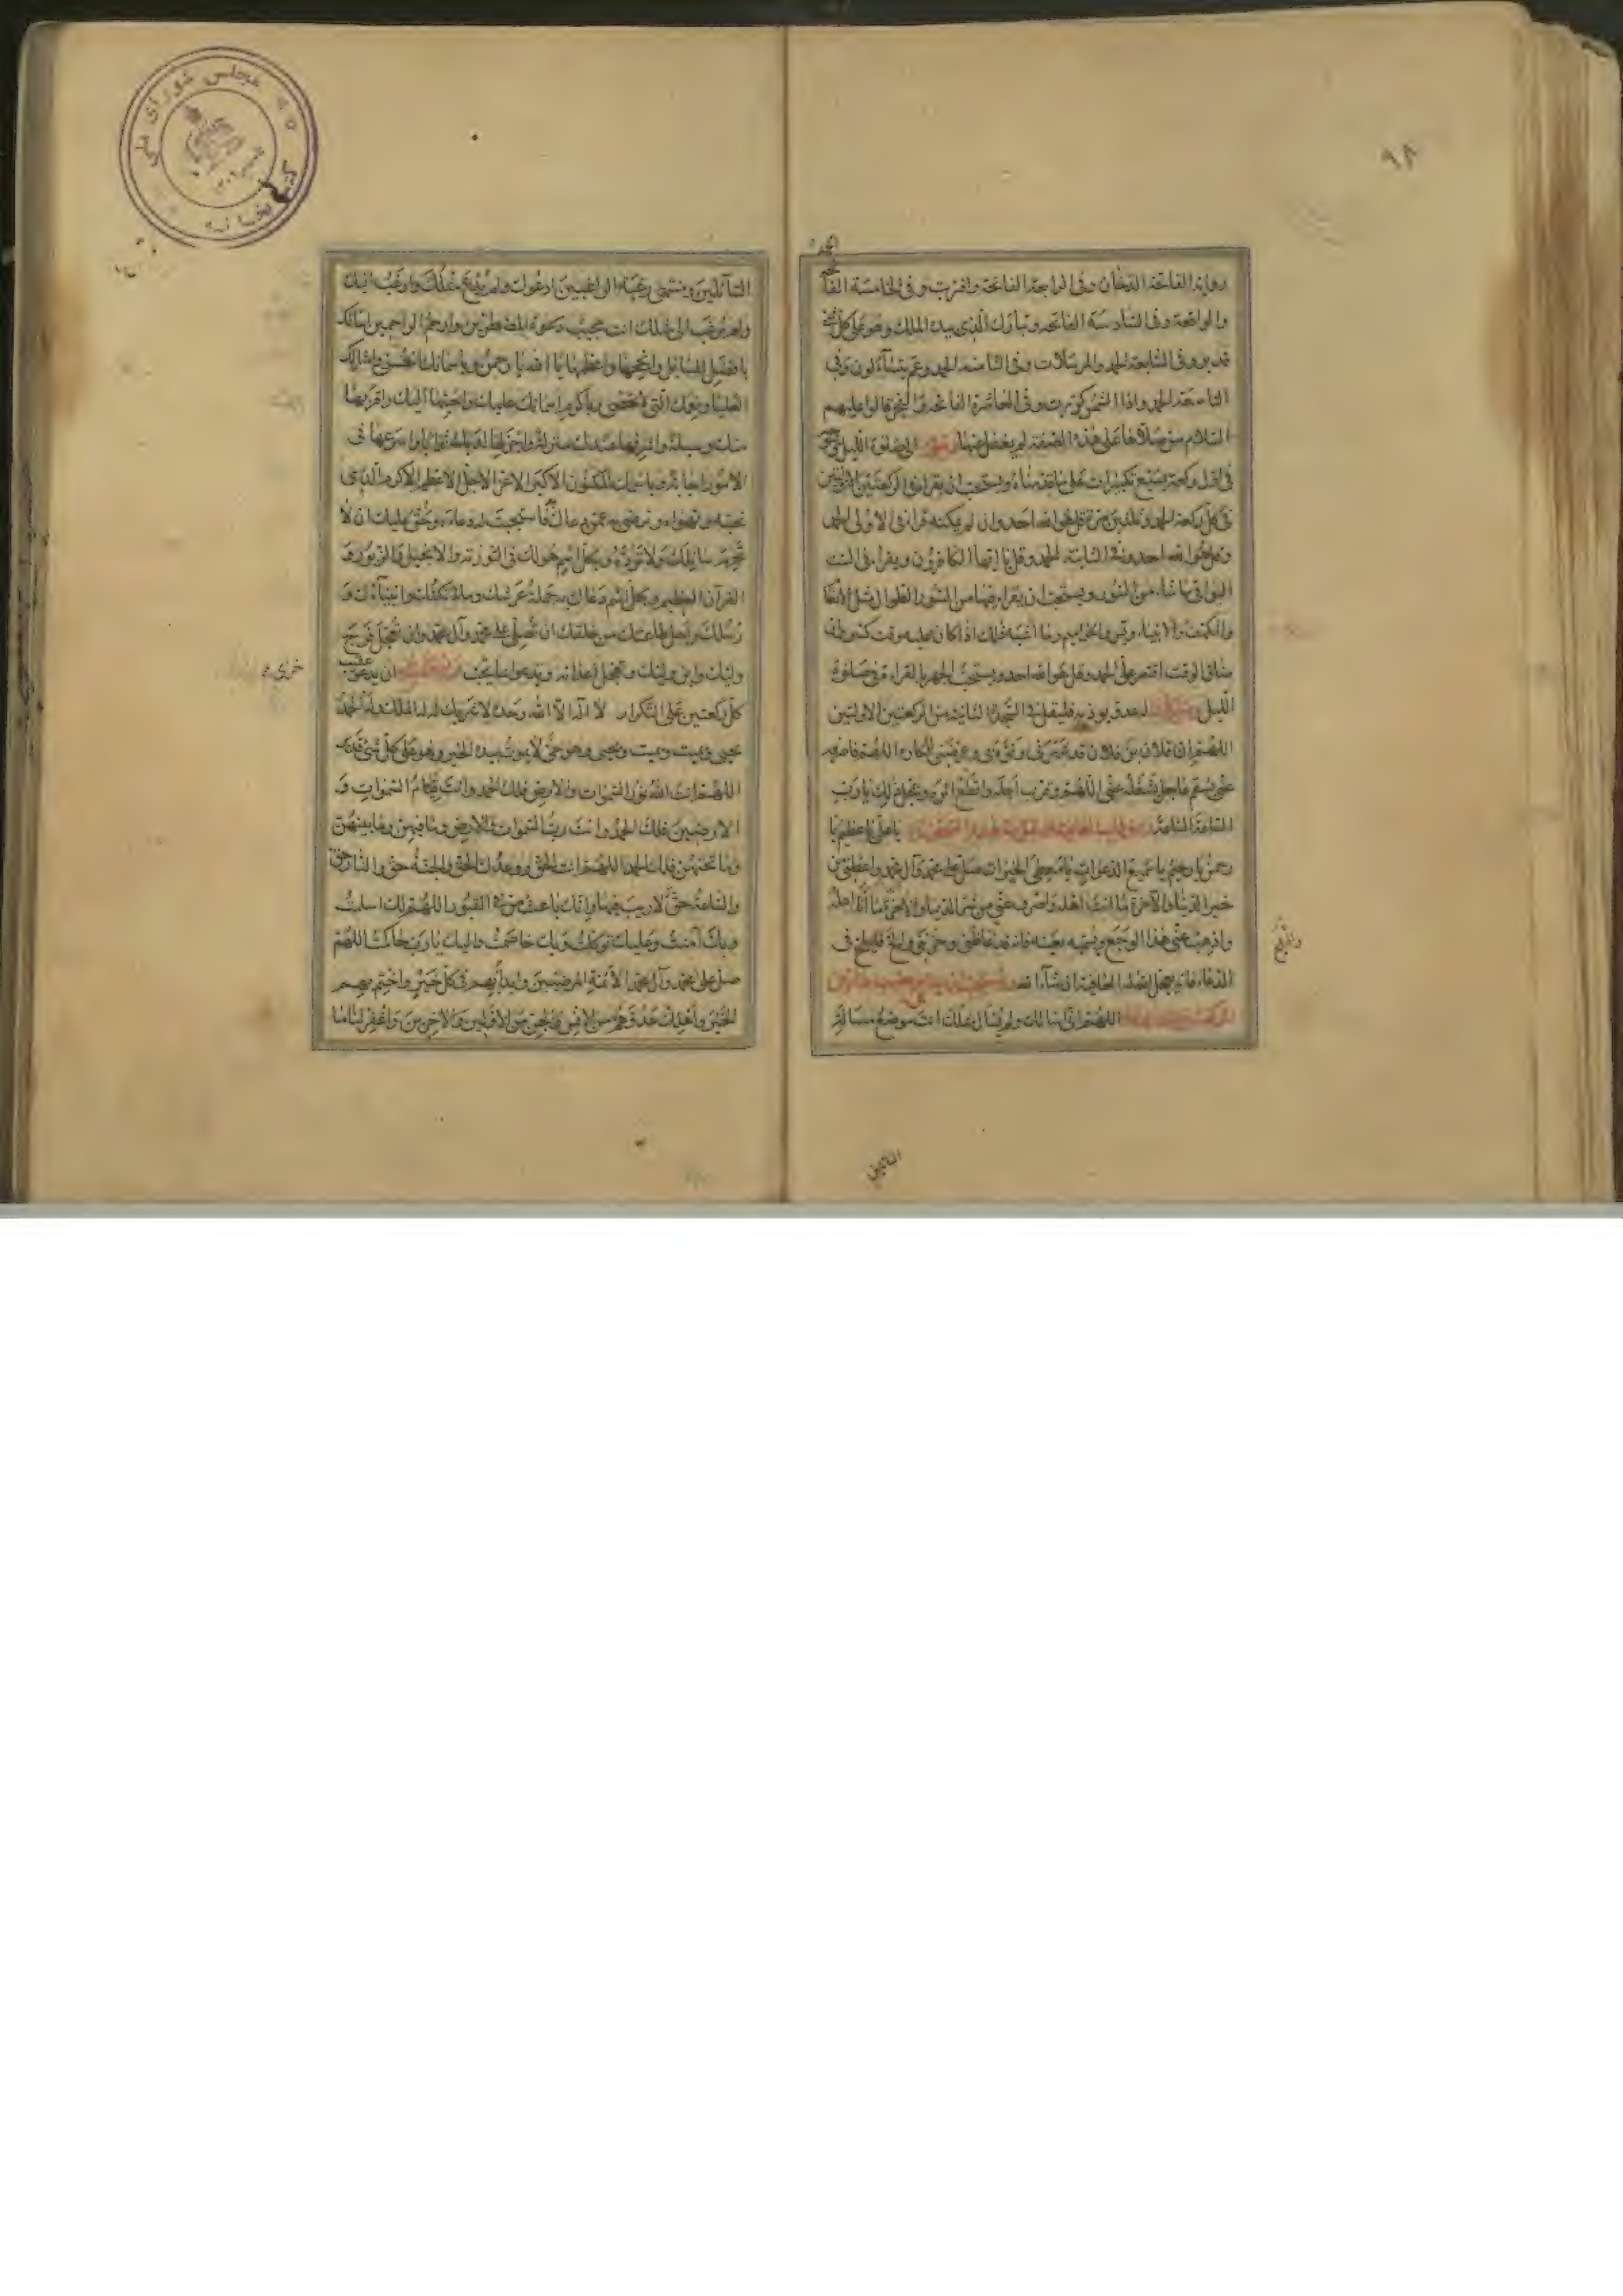 ٩٨
روايه الفاتحة الدخان وفى الرابعة الفاتحة واقتربت وفى الخامسة الفاتحة
والواقعة وفى السادسة الفاتحه وتبارك الّذى بيده الملك وهو على كلّ شئ
قدير وفى السابعة الحمد والمرسلات وفى الثامنه الحمد وعم يتساءلون وفى
التاسعة الحمد واذا الشمس كورت وفى العاشرة الفاتحة والفجر قالوا عليهم
السّلام من صلّاها على هذه الصّفة لم يغفل عنها الى صلوة الليل
فى اول ركعة بسبع تكبيرات على ما قدمناه ويستحب ان يقرأ فى الركعتين الاوليين
فى كلّ ركعة الحمد وثلثين مرة قل هو الله احد وان لم يمكنه قرأ فى الاولى الحمد
وقل هو الله احد وفى الثانية الحمد وقل يا ايّها الكافرون ويقرأ فى الست
البواقى ما شاء من السّور ويستحب ان يقرأ فيها من السّور الطوال مثل الانعام
والكهف والانبياء ويس والحواميم وما اشبه ذلك اذا كان عليه وقت كثير فان
ضاق الوقت اقتصر على الحمد وقل هو الله احد ويستحب الجهر بالقراءة فى صلوة
اللّيل عدو يوذيه فليقل فى السّجدة الثانية من الركعتين الاولتين
اللهم ان فلان بن فلان قد شهرنى ونوّه بى وعرضنى للمكاره اللهم فاصرفه
عنّى بسقم عاجل يشغله عنّى اللّهم وقرّب اجله واقطع اثره وعجّل ذلك يا ربّ
السّاعة السّاعة يا علىّ يا عظيم يا
رحمن يا رحيم يا سميع الدّعوات يا معطى الخيرات صلّ على محمّد وآل محمد واعطنى من
خير الدّنيا والآخرة ما انت اهله واصرف عنّى من شرّ الدّنيا والاخرة ما انا اهله
واذهب عنّى هذا الوجع ويسمّيه بعينه فانه قد غاظنى وحزننى والحّ فليلحّ فى
الدّعاء فانه يعجّل الله له العافية ان شاء الله
اللهم انّى اسالك ولم يسال مثلك انت موضع مسالة
السّائلين
السّائلين ومنتهى رغبة الراغبين ادعوك ولم يدع مثلك وارغب اليك
ولم يرغب الى مثلك انت مجيب دعوة المضطرين وارحم الراحمين اسالك
بافضل المسائل وانجحها واعظمها يا الله يا رحمن وباسمائك الحسنى وامثالك
العليا ونعمك الّتى لا تحصى وباكرم اسمائك عليك واحبّها اليك واقربها
منك وسيلة واشرفها عندك منزلة واجزلها لديك ثوابا واسرعها فى
الامور اجابة وباسمك المكنون الاكبر الاعزّ الاجلّ الاعظم الاكرم الّذى
تحبه وتهواه وترضى به عمّن دعاك فاستجبت له دعاءه وحقّ عليك ان لا
تحرم سائلك ولا تردّه وبكلّ اسم هو لك فى التورية والانجيل والزبور و
القرآن العظيم وبكلّ اسم دعاك به حملة عرشك وملائكتك وانبياءك و
رسلك واهل طاعتك من خلقك ان تصلّى على محمّد وآل محمّد وان تعجّل فرج
وليّك وابن وليّك وتعجّل خزى اعدائه ويدعو بما يحبّ ان يدعو عقيب
كلّ ركعتين على التكرار لا اله الا الله وحده لا شريك له له الملك وله الحمد
يحيى ويميت ويميت ويحيى وهو حىّ لا يموت بيده الخير وهو على كلّ شئ قدير
اللهم انت الله نور السّموات والارض فلك الحمد وانت قيّام السّموات و
الارضين فلك الحمد وانت ربّ السّموات والارض وما فيهن وما بينهنّ
وما تحتهنّ فلك الحمد اللهم انت الحق ووعدك الحق والجنة حق والنّار حق
والسّاعة حقّ لا ريب فيها وانّك باعث من فى القبور اللهم لك اسلمت
وبك آمنت وعليك توكلت وبك خاصمت واليك يا ربّ حاكمت اللهم
صل على محمّد وآل محمّد الائمة المرضيين وابدأ بهم فى كلّ خير واختم بهم
الخير واهلك عدوّهم من الانس والجن من الاوّلين والآخرين واغفر لنا ما
مجلس شوراى ملى
كتابخانه